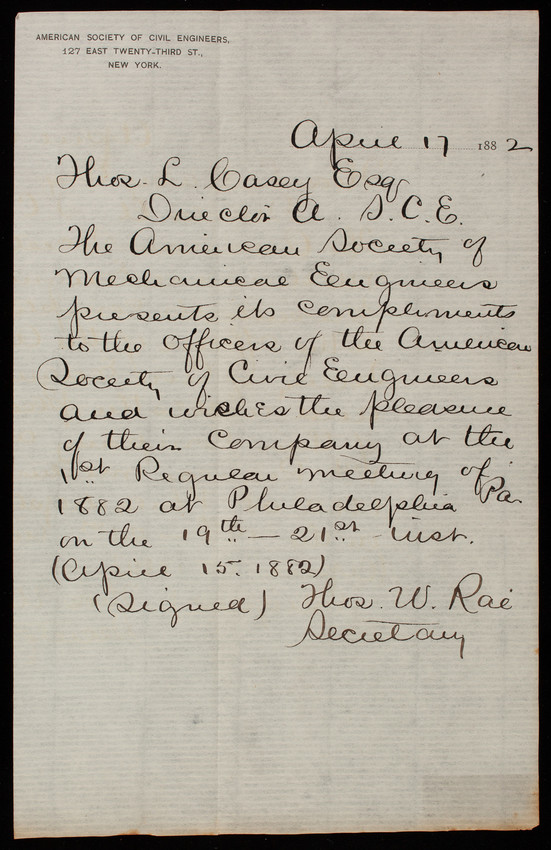 AMERICAN SOCIETY OF CIVIL ENGINEERS,
127 EAST TWENTY-THIRD ST.,
NEW YORK.
April 17 1882
Thos. L. Casey Esq
Director A. S. C. E.
The American Society of
Mechanical Engineers
presents its compliments
to the Officers of the American
Society of Civil Engineers
and wishes the pleasure
of their Company at the
1st Regular meeting of
1882 at Philadelphia Pa.
on the 19th — 21st inst.
(April 15. 1882)
(Signed) Thos. W. Rae
Secretary